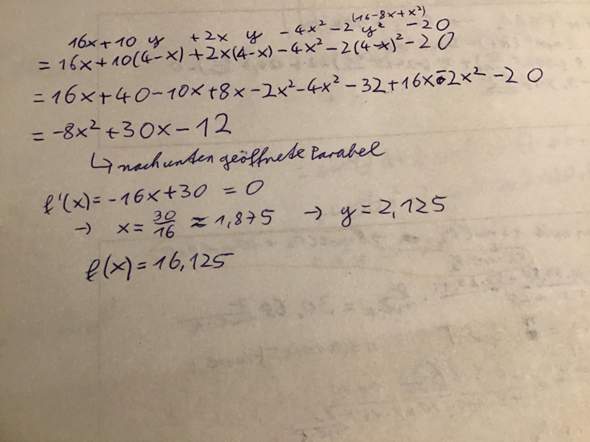 (16-8x+x²)
16x+10 y +2x y -4x²-2 y² -20
=16x+10(4-x)+2x(4-x)-4x²-2(4-x)²-20
=16x+40-10x+8x-2x²-4x²-32+16x-2x²-20
=-8x²+30x-12
↳ nach unten geöffnete Parabel
f'(x)=-16x+30 =0
→ x=30/16≈1,875 → y=2,125
f(x)=16,125